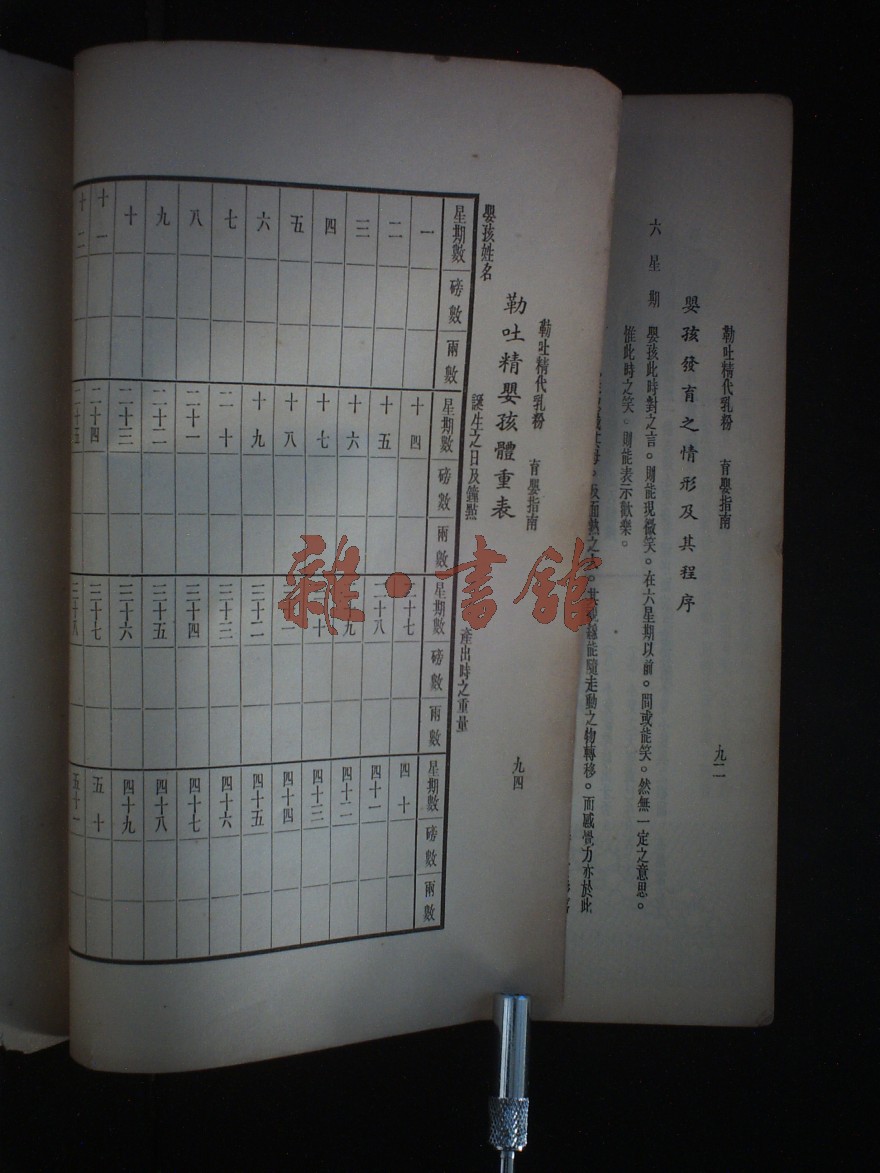 勒吐精代乳粉 育嬰指南 九二
嬰孩發育之情形及其程序
六星期 嬰孩此時對之言。則能現微笑。在六星期以前。間或能笑。然無一定之意思。
惟此時之笑。則能表示歡樂。
能隨走動之物轉移。而感覺力亦於此
勒吐精代乳粉 育嬰指南 九四
勒吐精嬰孩體重表
嬰孩姓名 誕生之日及鐘點 產出時之重量
星期數 磅數 兩數 星期數 磅數 兩數 星期數 磅數 兩數 星期數 磅數 兩數
一 十四 二十七 四十
二 十五 二十八 四十一
三 十六 九 四十二
四 十七 十 四十三
五 十八 一 四十四
六 十九 三十二 四十五
七 二十 三十三 四十六
八 二十一 三十四 四十七
九 二十二 三十五 四十八
十 二十三 三十六 四十九
十一 二十四 三十七 五十
十二 二十五 三十八 五十一
雜·書館